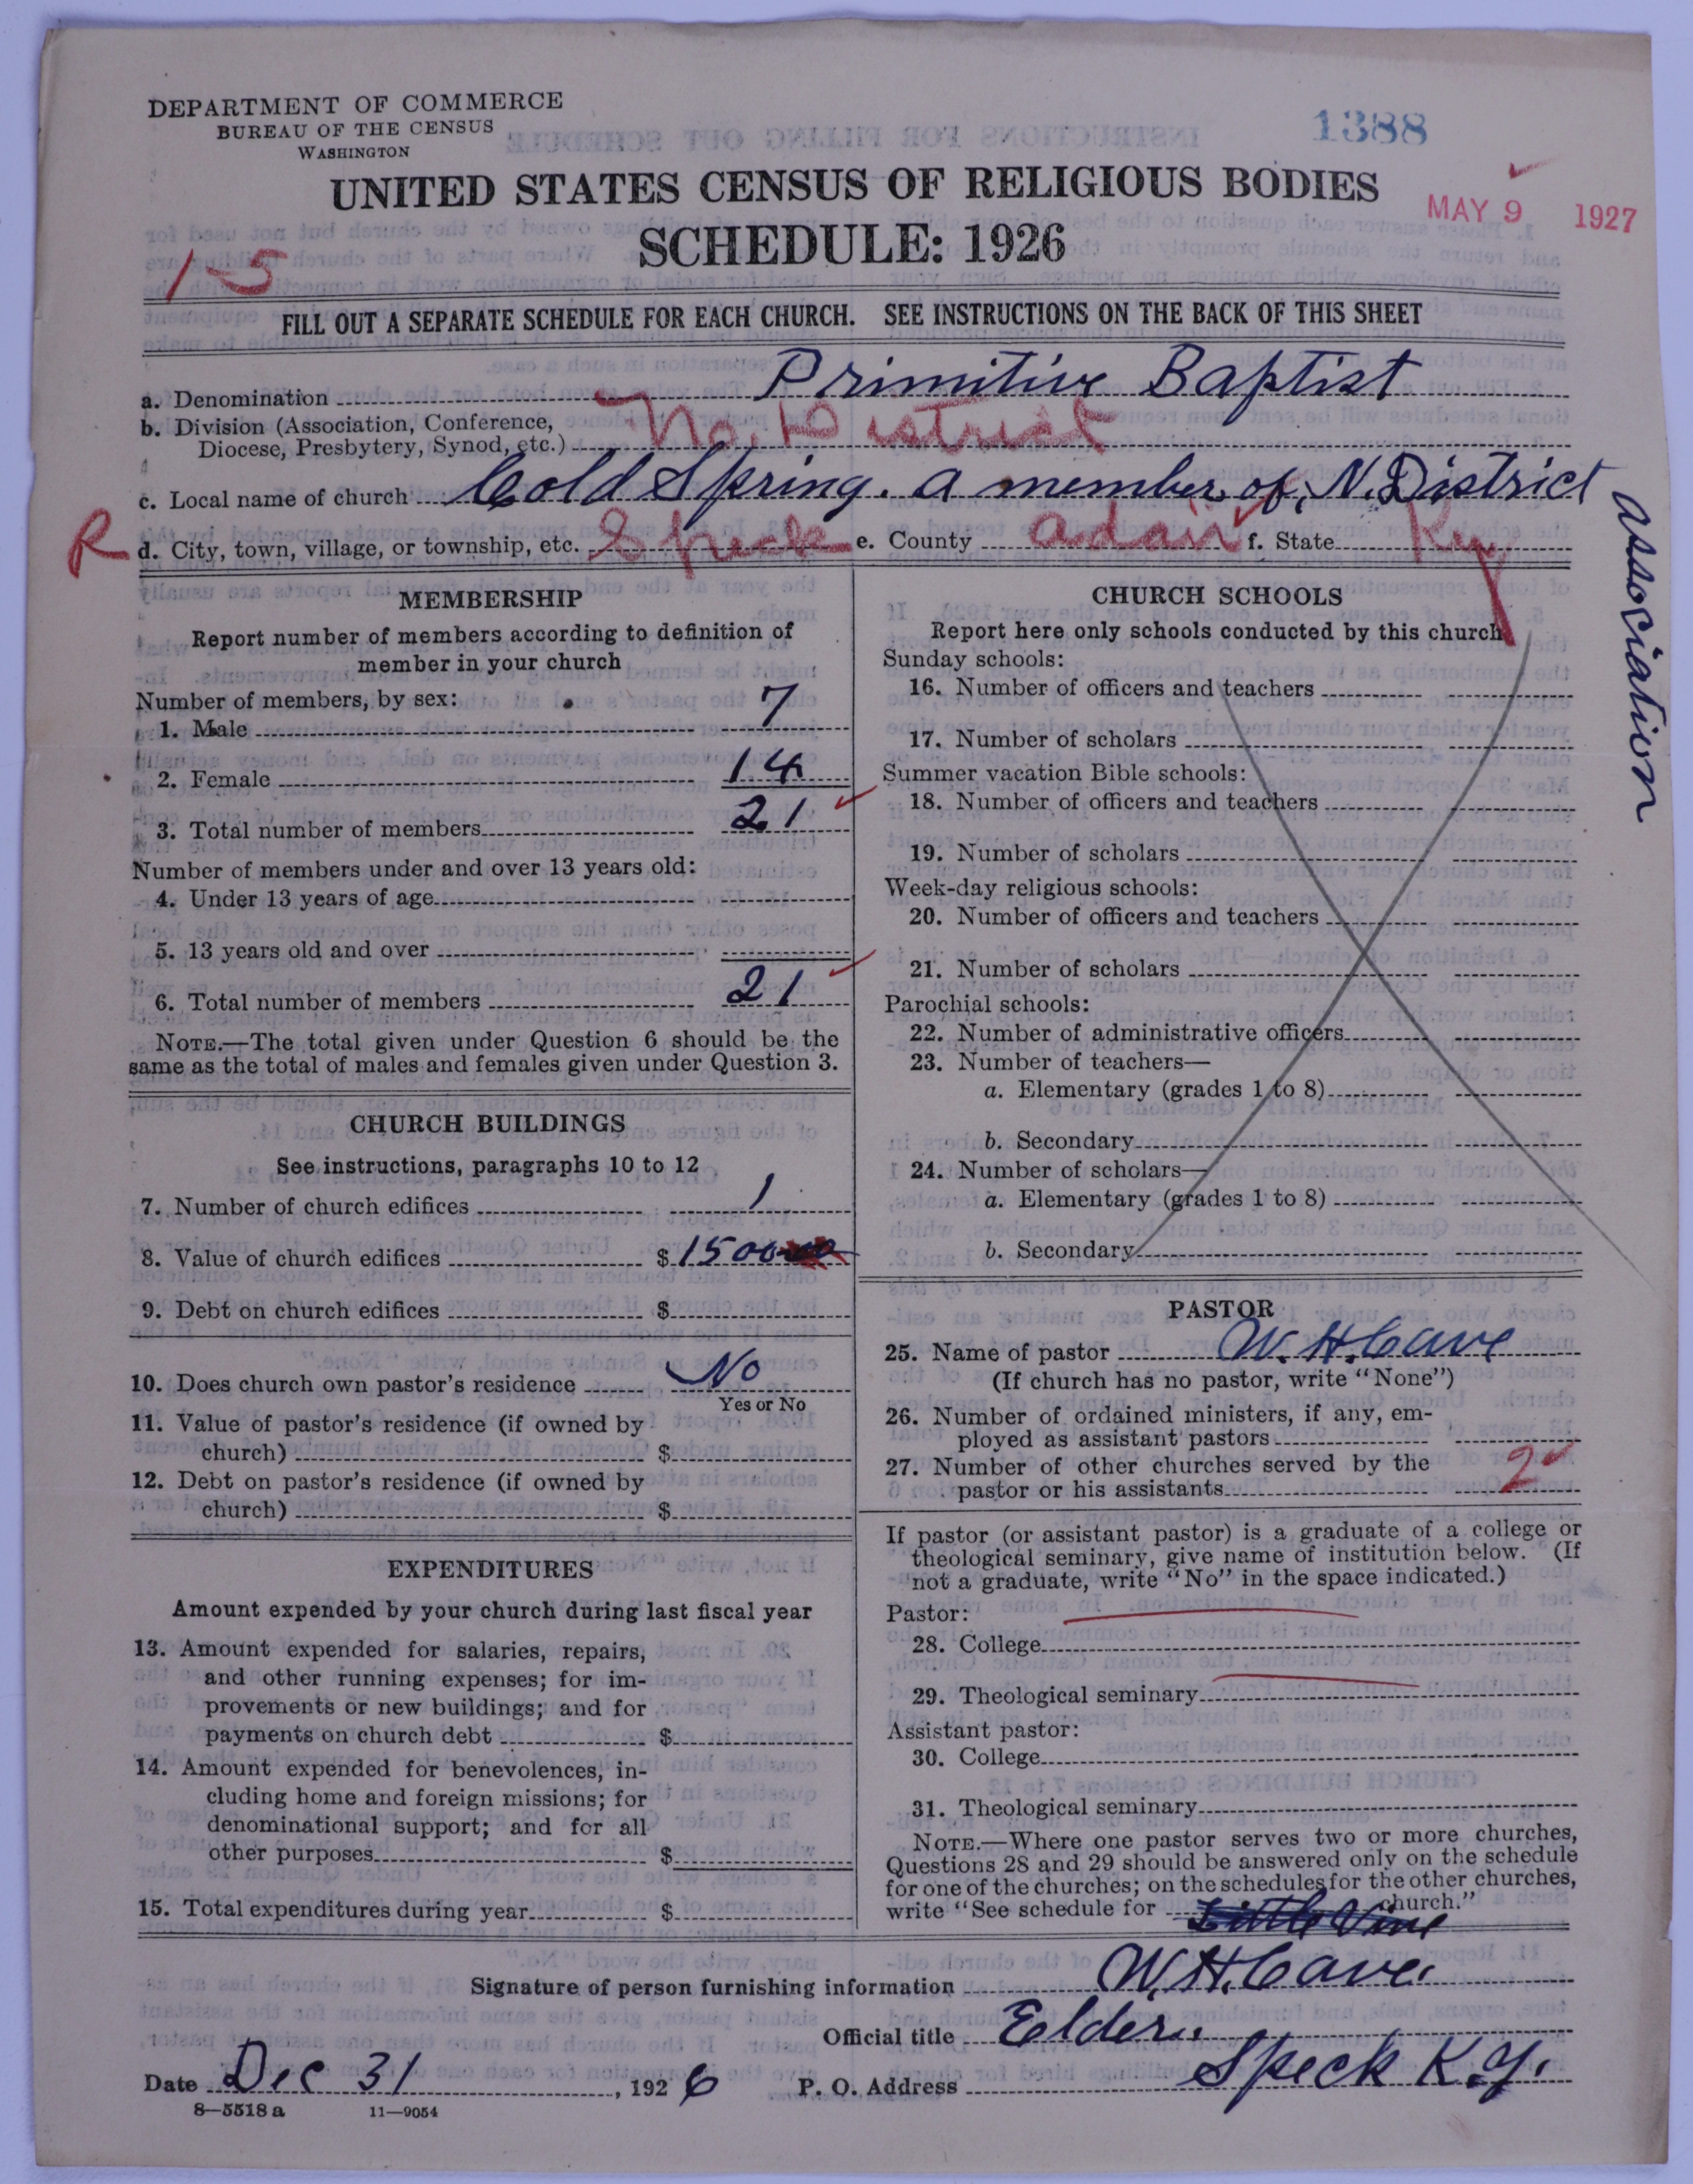 DEPARTMENT OF COMMERCE
BUREAU OF THE CENSUS
WASHINGTON
1388
UNITED STATES CENSUS OF RELIGIOUS BODIES
MAY 9 1927
SCHEDULE: 1926
1-5
FILL OUT A SEPARATE SCHEDULE FOR EACH CHURCH. SEE INSTRUCTIONS ON THE BACK OF THIS SHEET
a. Denomination Primitive Baptist
b. Division (Association, Conference,
Diocese, Presbytery, Synod, etc.) No. District
c. Local name of church Cold Spring. a member of N. District
association
R d. City, town, village, or township, etc. Speck e. County Adair f. State Ky
MEMBERSHIP
Report number of members according to definition of
member in your church
Number of members, by sex:
1. Male 7
2. Female 14
3. Total number of members 21
Number of members under and over 13 years old:
4. Under 13 years of age
5. 13 years old and over
6. Total number of members 21
NOTE.—The total given under Question 6 should be the
same as the total of males and females given under Question 3.
CHURCH BUILDINGS
See instructions, paragraphs 10 to 12
7. Number of church edifices 1
8. Value of church edifices $ 1500
9. Debt on church edifices $
10. Does church own pastor's residence No
Yes or No
11. Value of pastor's residence (if owned by
church) $
12. Debt on pastor's residence (if owned by
church) $
EXPENDITURES
Amount expended by your church during last fiscal year
13. Amount expended for salaries, repairs,
and other running expenses; for im-
provements or new buildings; and for
payments on church debt $
14. Amount expended for benevolences, in-
cluding home and foreign missions; for
denominational support; and for all
other purposes $
15. Total expenditures during year $
CHURCH SCHOOLS
Report here only schools conducted by this church
Sunday schools:
16. Number of officers and teachers
17. Number of scholars
Summer vacation Bible schools:
18. Number of officers and teachers
19. Number of scholars
Week-day religious schools:
20. Number of officers and teachers
21. Number of scholars
Parochial schools:
22. Number of administrative officers
23. Number of teachers—
a. Elementary (grades 1 to 8)
b. Secondary
24. Number of scholars—
a. Elementary (grades 1 to 8)
b. Secondary
PASTOR
25. Name of pastor W. H. Cave
(If church has no pastor, write "None")
26. Number of ordained ministers, if any, em-
ployed as assistant pastors
27. Number of other churches served by the
pastor or his assistants 2
If pastor (or assistant pastor) is a graduate of a college or
theological seminary, give name of institution below. (If
not a graduate, write "No" in the space indicated.)
Pastor:
28. College
29. Theological seminary
Assistant pastor:
30. College
31. Theological seminary
NOTE.—Where one pastor serves two or more churches,
Questions 28 and 29 should be answered only on the schedule
for one of the churches; on the schedules for the other churches,
write "See schedule for Little Vine church."
Signature of person furnishing information W. H. Cave.
Official title Elder.
Date Dec 31, 1926 P. O. Address Speck K.Y.
8—5518 a 11—9054